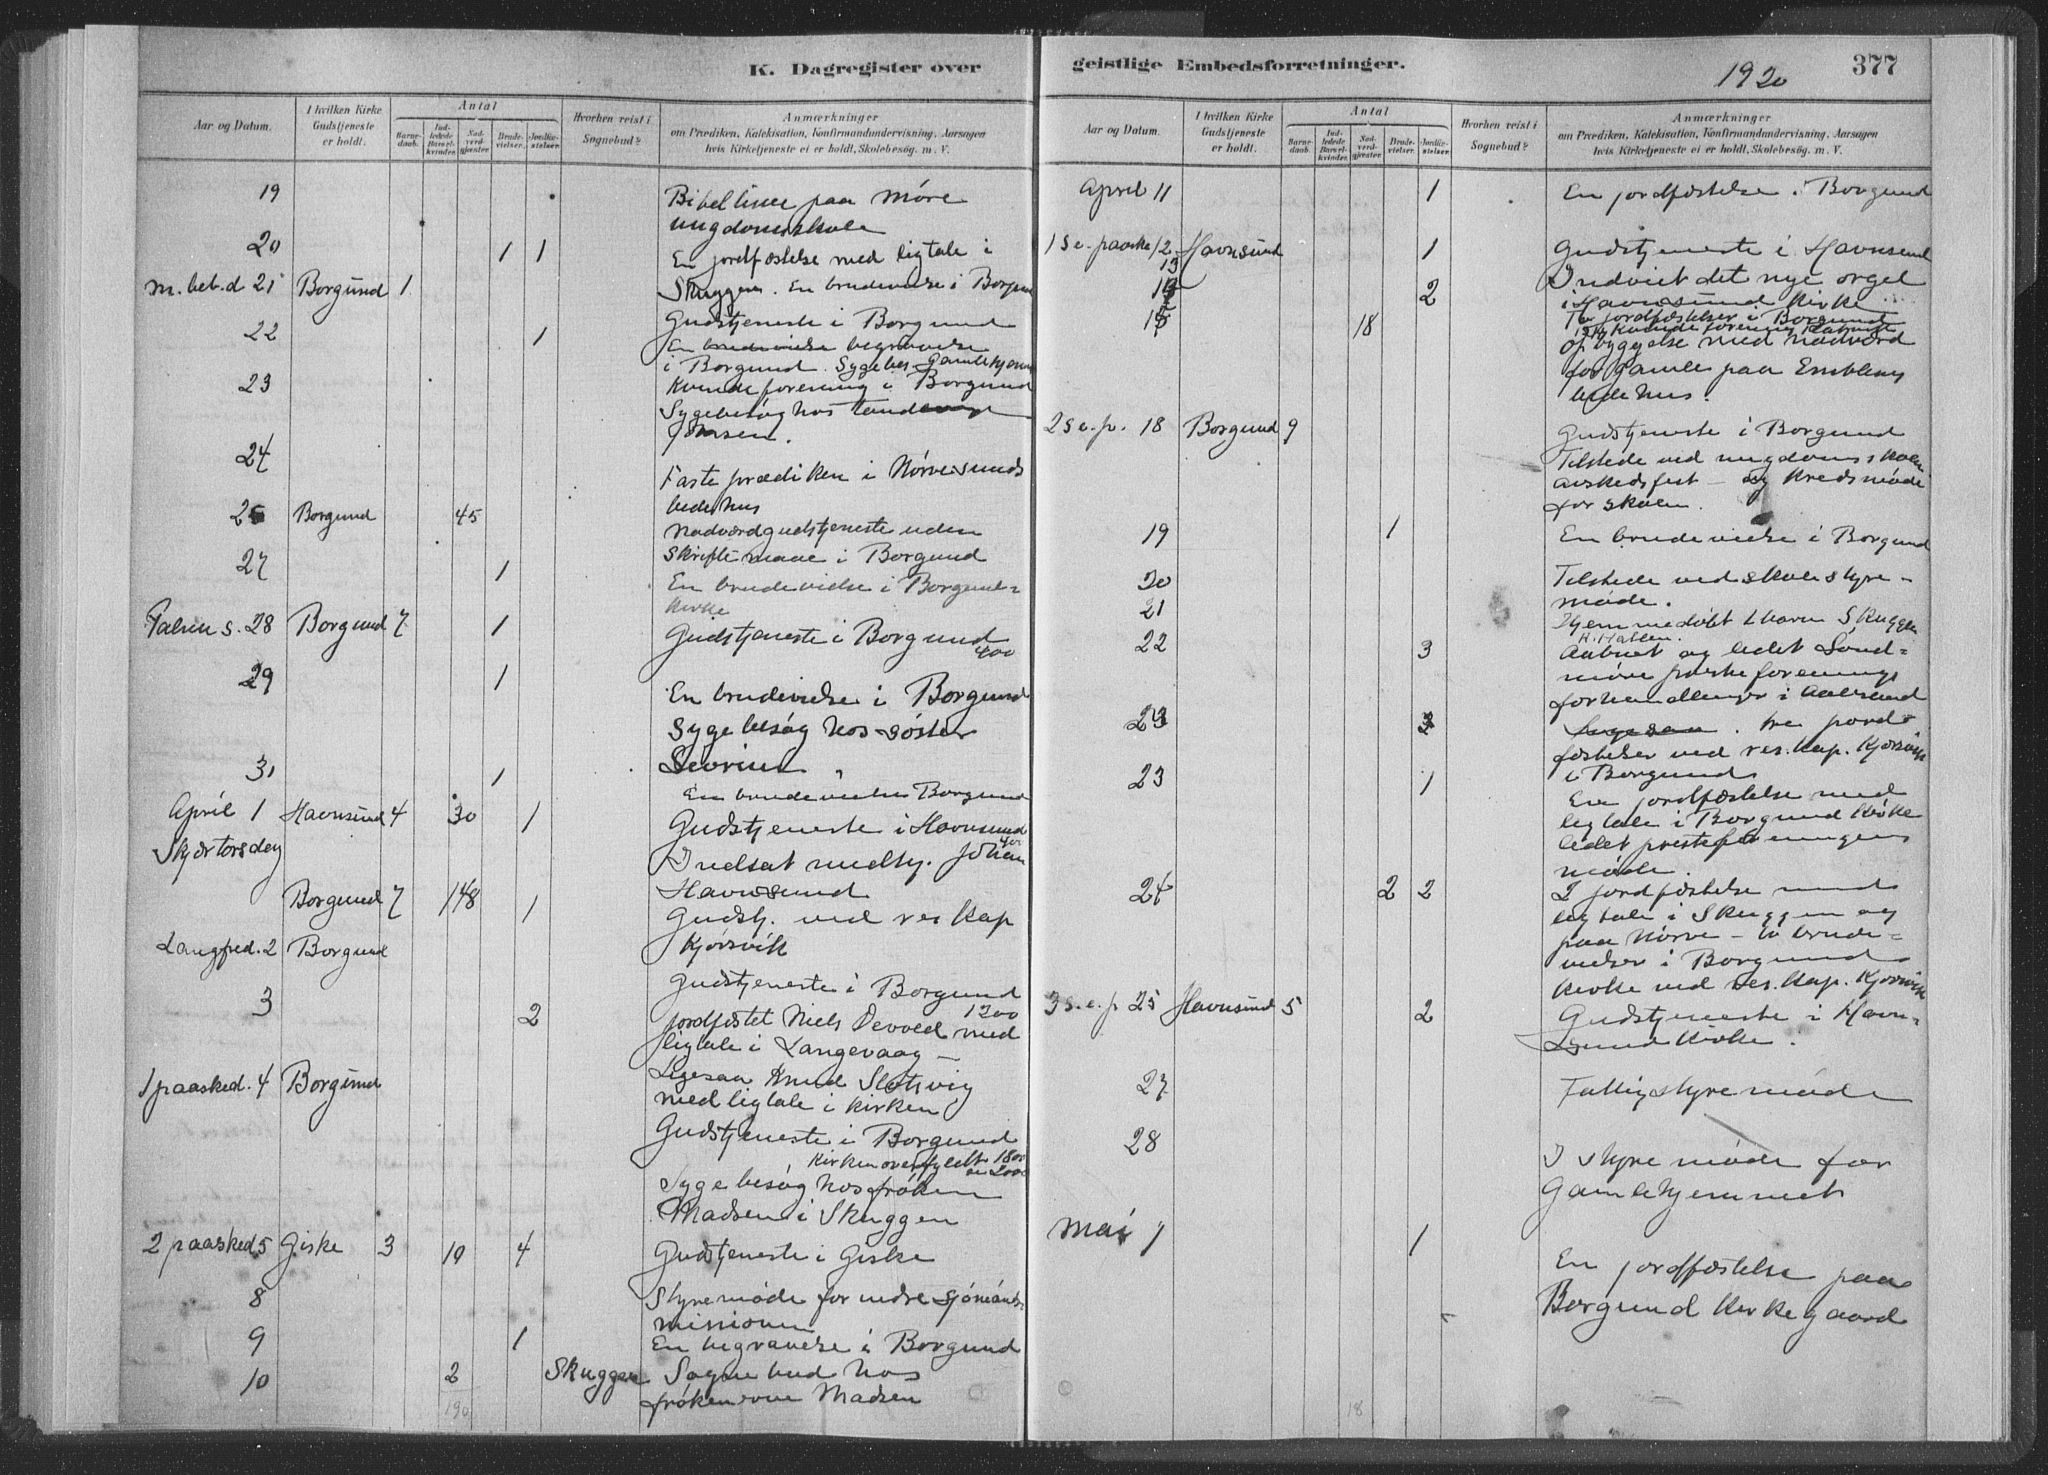 K. Dagregister over
Aar og Datum.
I hvilken Kirke Gudstjeneste er holdt.
Antal
Barne-daab.
Ind-ledede Barsel-kvinder.
Nad-verd-gjæster
Brude-vielser.
Jordfæ-stelser.
Hvorhen reist i Sognebud?
Anmærkninger
om Prædiken, Katekisation, Konfirmandundervisning, Aarsagen
hvis Kirketjeneste ei er holdt, Skolebesøg. m. V.
19 Bibeltime paa Møre
ungdomsskole
20 1 1 En jordfæstelse med ligtale i
m. beb. d 21 Borgund 1 Skuggen. En brudevielse i Borgund
Gudstjeneste i Borgund
22 1 En brudevielse begravelse
i Borgund. Sygebes. Gamlehjem
23 Kvindeforening i Borgund
Sygebesøg hos
24 Fasteprædiken i Nørvesunds
bedehus
26 Borgund 45 Nadverdgudstjeneste uden
skriftemaal i Borgund
27 1 En brudevielse i Borgund-
kirke
Palme s. 28 Borgund 7 1 Gudstjeneste i Borgund
400
29 1 En brudevielse i Borgund
Sygebesøg hos søster
31 1 En brudevielse Borgund
April 1 Havnsund 4 30 1 Gudstjeneste i Havnsund
400
Skjærtorsdag Indsat medhj. Johan
Havnsund
Borgund 7 148 1 Gudstj. ved res kap
Kjørsvik
Langfred. 2 Borgund
Gudstjeneste i Borgund
1200
3 2 jordfæstet Niels Devold med
ligtale i Langevaag –
Ligesaa Knud Slotsvig
med ligtale i kirken
1 paasked. 4 Borgund
Gudstjeneste i Borgund
Kirken overfyldt 1800
Sygebesøg hos frøken
Madsen i Skuggen
2 paasked 5 Giske 3 10 4 Gudstjeneste i Giske
8 Styremøde for indre sjømands-
missionen
9 1 En begravelse i Borgund
10 2 Skuggen Sognebud hos
frøken Madsen
190
geistlige Embedsforretninger.
1920
377
Aar og Datum.
I hvilken Kirke Gudstjeneste er holdt.
Antal
Barne-daab.
Ind-ledede Barsel-kvinder.
Nad-verd-gjæster
Brude-vielser.
Jordfæ-stelser.
Hvorhen reist i Sognebud?
Anmærkninger
om Prædiken, Katekisation, Konfirmandundervisning, Aarsagen
hvis Kirketjeneste ei er holdt, Skolebesøg. m. V.
April 11 1 En jordfæstelse i Borgund
1 s e. paaske 12 Havnsund 1 Gudstjeneste i Havnsund
13 Indviet det nye orgel
2 i Havnsund kirke
To jordfæstelser i Borgund
15 18
opbyggelse med nadverd
for gamle paa Emblem
bedehus.
2 s e. p. 18 Borgund 9 Gudstjeneste i Borgund
Tilstede ved ungdomsskolen
avskedsfest – og kredsmøde
for skolen.
19 1 En brudevielse i Borgund
20 Tilstede ved skolestyre-
møde.
21 Hjemmedøbt 1 barn Skuggen
K. Hatlen.
22 3 Aabnet og ledet Sønd-
møre presteforenings
forhandlinger i Aalesund
23 tre jord-
fæstelser ved res. kap. Kjørsvik
i Borgund
23 1 En jordfæstelse med
ligtale i Borgund kirke
ledet presteforeningens
møde.
24 2 2 2 jordfæstelse med
ligtale i Skuggen og
paa Nørve – to brude-
vielser i Borgund
kirke ved res. kap. Kjørsvik
3 s. e. p 25 Havnsund 5 2 Gudstjeneste i Havn-
sund kirke.
27 Fattigstyremøde
28 I styremøde for
Gamlehjemmet
Mai 1 1 En jordfæstelse paa
Borgund kirkegaard
18